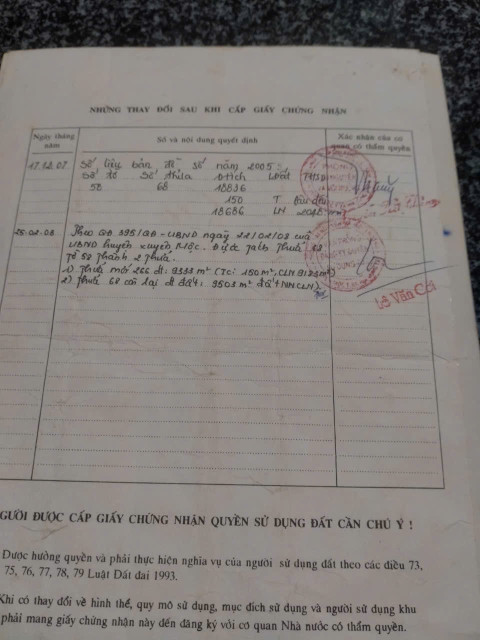 NHỮNG THAY ĐỔI SAU KHI CẤP GIẤY CHỨNG NHẬN
Ngày tháng năm
Số và nội dung quyết định
Xác nhận của cơ quan có thẩm quyền
17.12.07
Số liệu bản đồ số năm 2005:
Số tờ Số thửa D.tích Loại
58 68 18836
150 T
18686 LN
25.02.08
Theo QĐ 395/QĐ-UBND ngày 22/02/08 của
UBND huyện Xuyên Mộc. Được tách thửa 68
tờ 58 thành 2 thửa.
1) Thửa mới 266 dt: 9333 m² (TC: 150 m², CLN 9183 m²)
2) Thửa 68 còn lại dt 9503 m²
Lê Văn
GƯỜI ĐƯỢC CẤP GIẤY CHỨNG NHẬN QUYỀN SỬ DỤNG ĐẤT CẦN CHÚ Ý !
Được hưởng quyền và phải thực hiện nghĩa vụ của người sử dụng đất theo các điều 73,
75, 76, 77, 78, 79 Luật Đất đai 1993.
Khi có thay đổi về hình thể, quy mô sử dụng, mục đích sử dụng và người sử dụng khu
phải mang giấy chứng nhận này đến đăng ký với cơ quan Nhà nước có thẩm quyền.